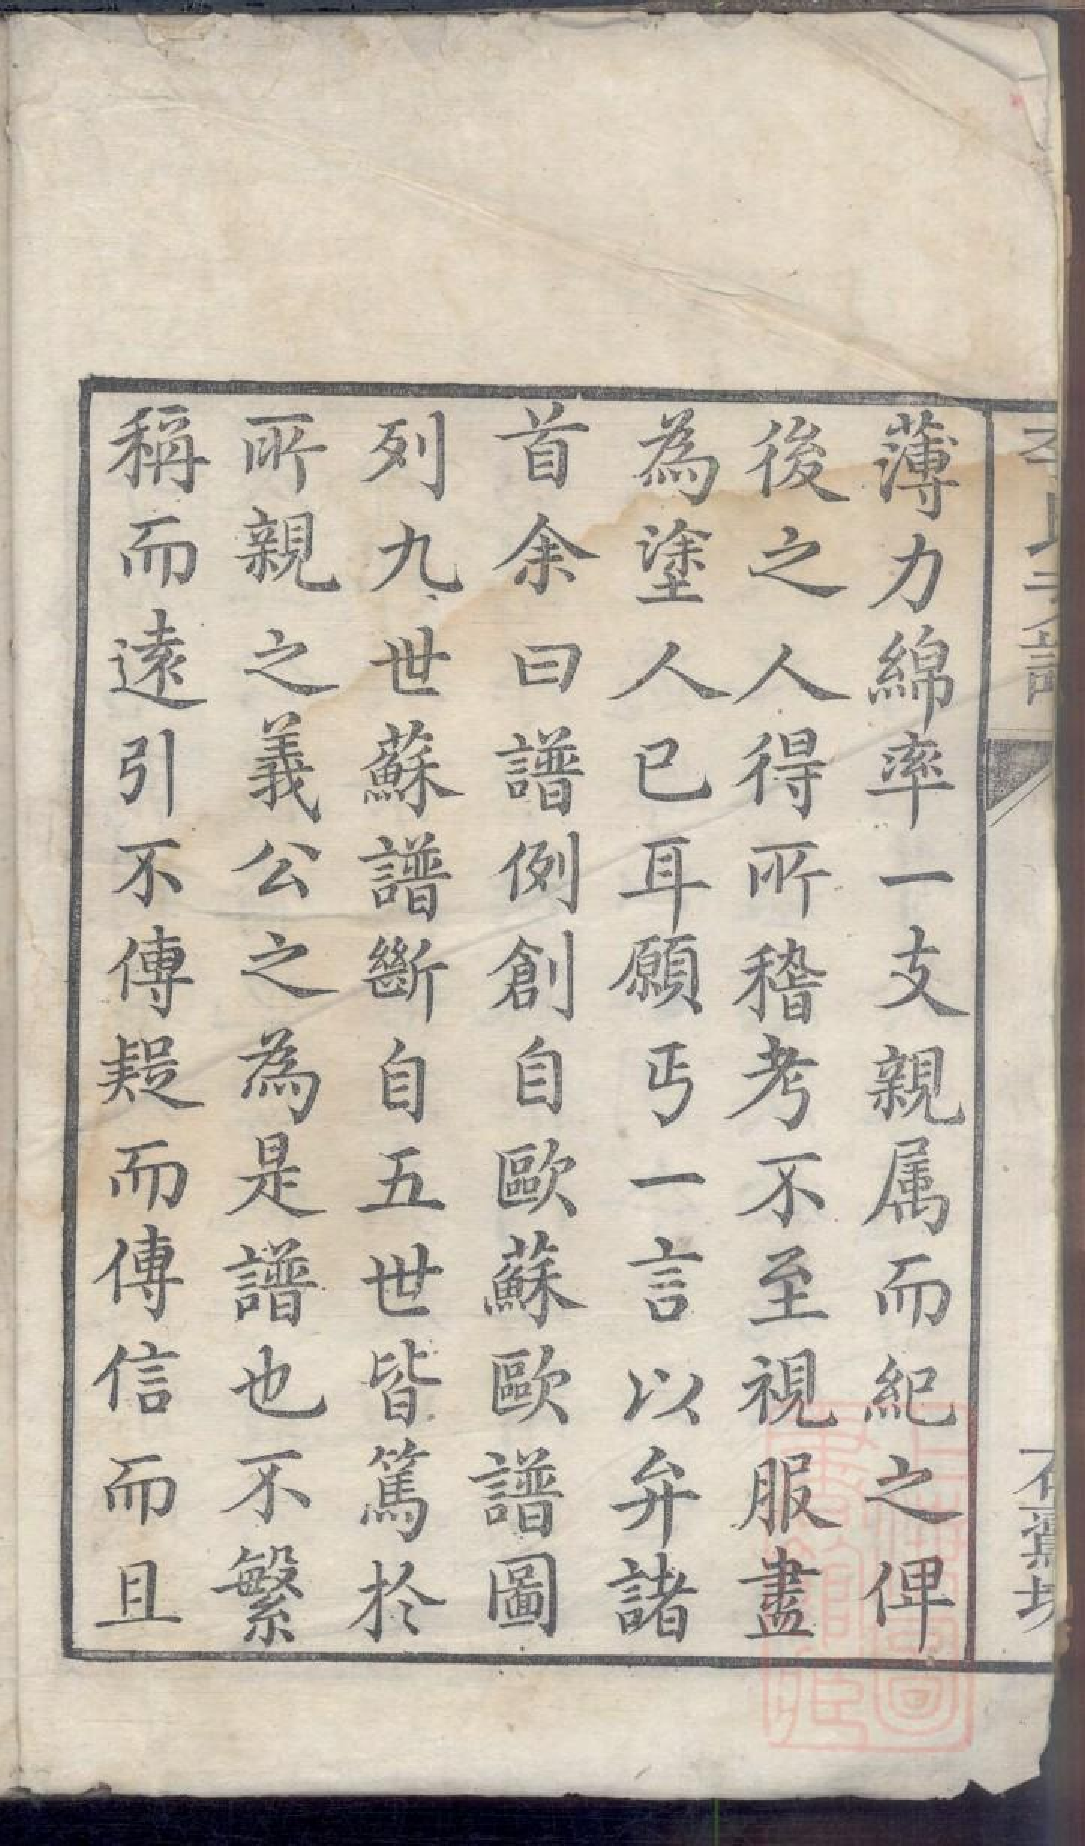 薄力綿率一支親属而紀之俾
後之人得所稽考不至視服盡
為塗人已耳願丐一言以弁諸
首余曰譜例創自歐蘇歐譜圖
列九世蘇譜斷自五世皆篤於
所親之義公之為是譜也不繁
稱而遠引不傳疑而傳信而且